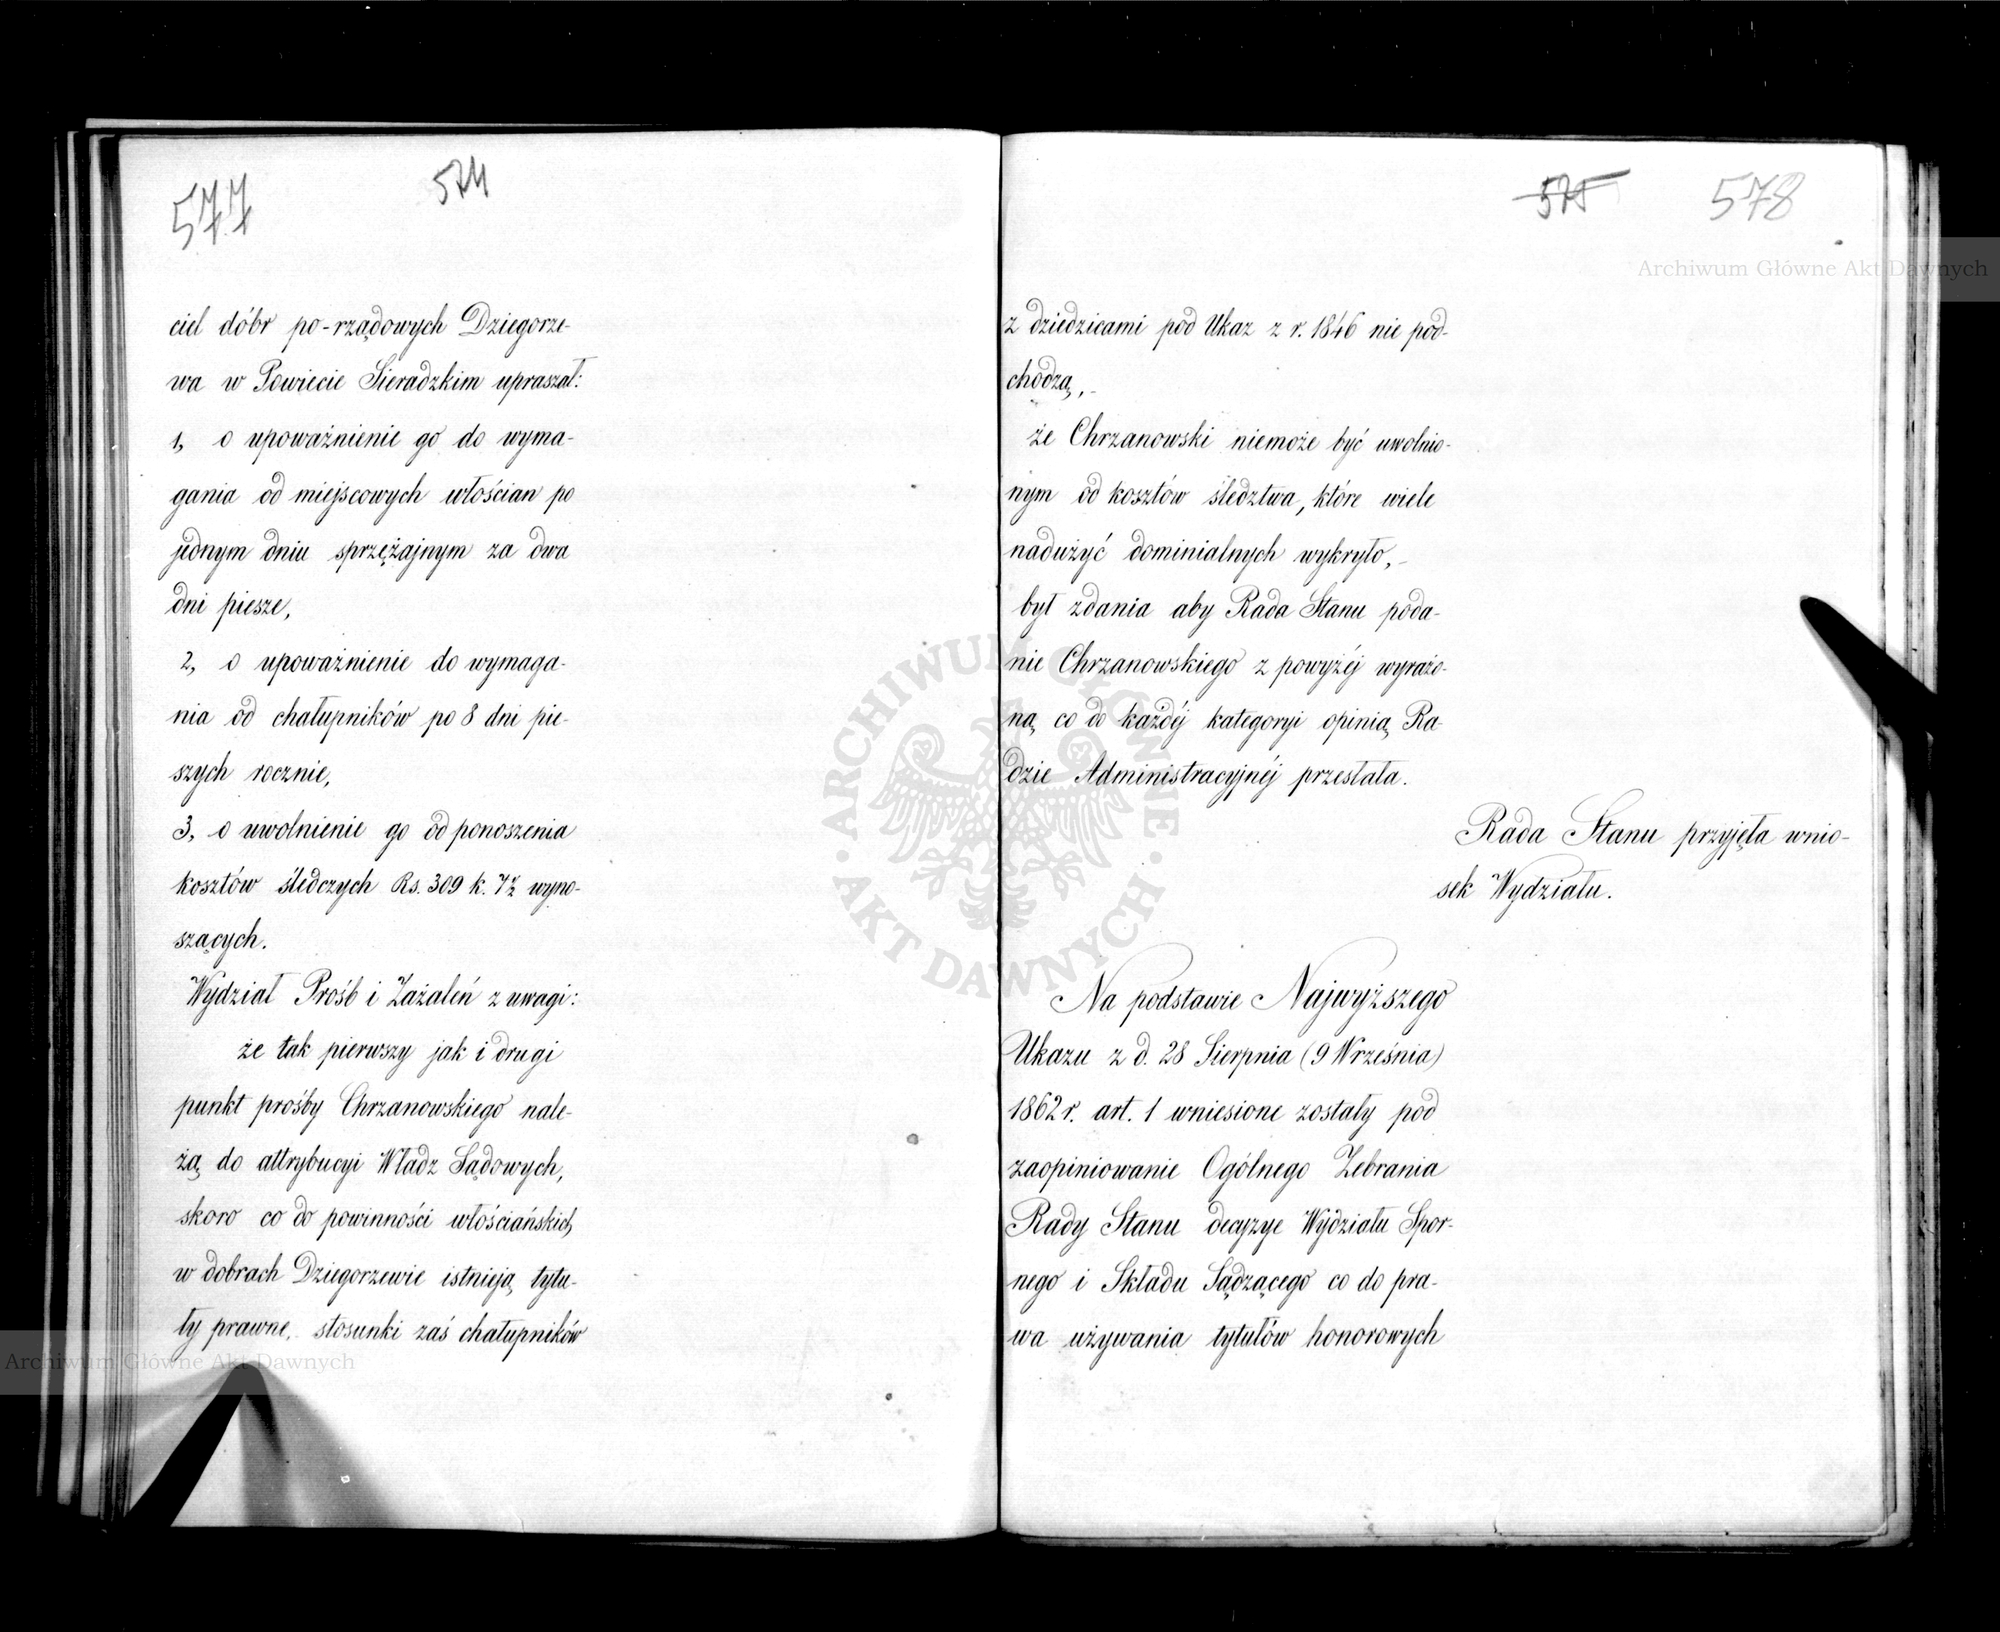 577
574
ciel dóbr po-rządowych Dziegorze-
wa w Powiecie Sieradzkim upraszał:
1, o upoważnienie go do wyma-
gania od miejscowych włościan po
jednym dniu sprzężajnym za dwa
dni piesze,
2, o upoważnienie do wymaga-
nia od chałupników po 8 dni pie-
szych rocznie,
3, o uwolnienie go od ponoszenia
kosztów śledczych Rs. 309 k. 7½ wyno-
szących.
Wydział Prośb i Zażaleń z uwagi:
że tak pierwszy jak i drugi
punkt prośby Chrzanowskiego nale-
żą do attrybucyi Władz Sądowych,
skoro co do powinności włościańskich
w dobrach Dziegorzewie istnieją tytu-
ły prawne, stosunki zaś chałupników
575
578
z dziedzicami pod Ukaz z r. 1846 nie pod-
chodzą,-
że Chrzanowski niemoże być uwolnio-
nym od kosztów śledztwa, które wiele
nadużyć dominialnych wykryło,-
był zdania aby Rada Stanu poda-
nie Chrzanowskiego z powyżéj wyrażo-
ną co do każdéj kategoryi opinią Ra-
dzie Administracyjnéj przesłała.
Rada Stanu przyjęła wnio-
sek Wydziału.
Na podstawie Najwyższego
Ukazu z d. 28 Sierpnia (9 Września)
1862 r. art. 1 wniesione zostały pod
zaopiniowanie Ogólnego Zebrania
Rady Stanu decyzye Wydziału Spor-
nego i Składu Sądzącego co do pra-
wa używania tytułów honorowych
Archiwum Główne Akt Dawnych
Archiwum Główne Akt Dawnych
ARCHIWUM GŁÓWNE · AKT DAWNYCH ·